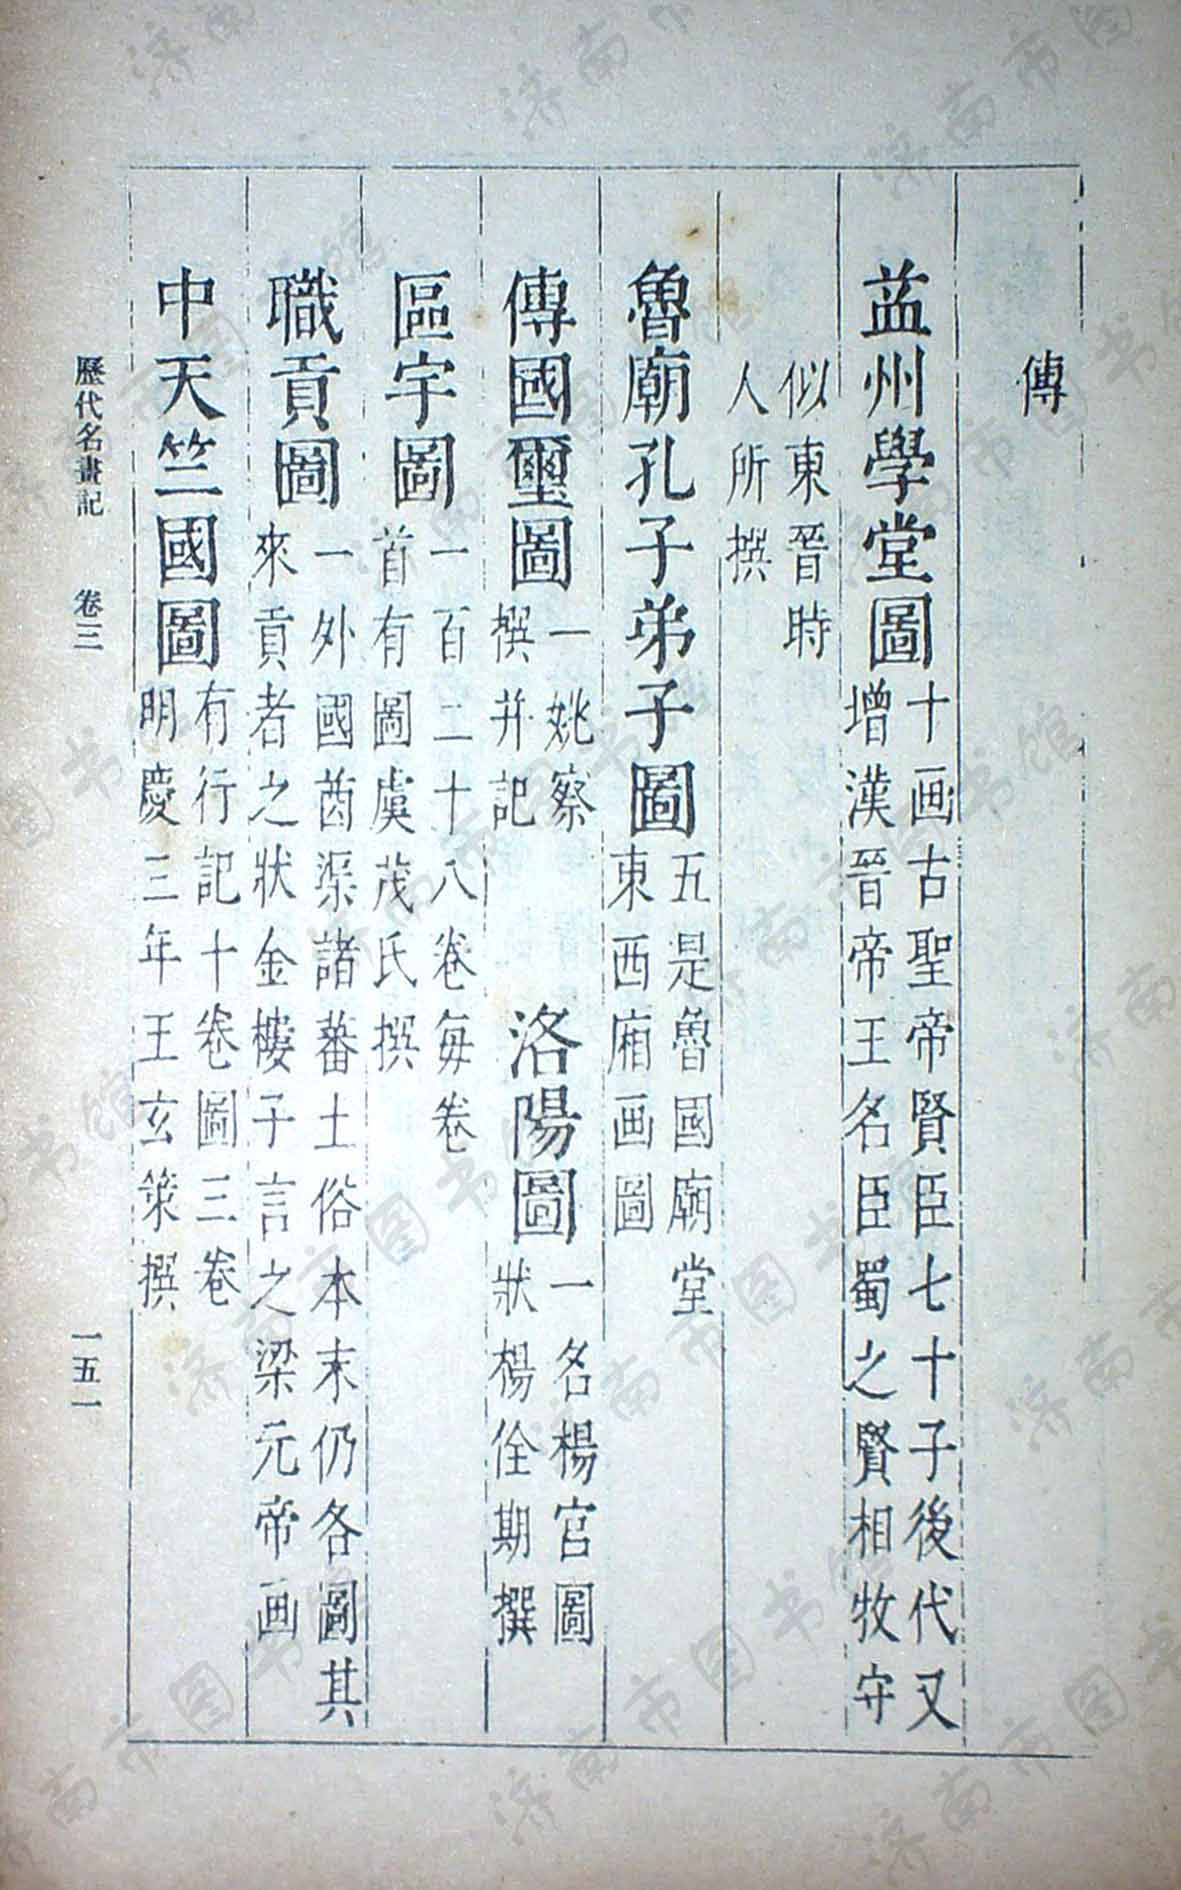 傳
益州學堂圖
十画古聖帝賢臣七十子後代又
增漢晉帝王名臣蜀之賢相牧守
似東晉時
人所撰
魯廟孔子弟子圖
五是魯國廟堂
東西廂画圖
傳國璽圖
一姚察
撰并記
洛陽圖
一名楊宮圖
狀楊佺期撰
區宇圖
一百二十八卷每卷
首有圖虞茂氏撰
職貢圖
一外國酋渠諸蕃土俗本末仍各圖其
來貢者之狀金樓子言之梁元帝画
中天竺國圖
有行記十卷圖三卷
明慶三年王玄策撰
歷代名畫記 卷三 一五一
济南市图书馆